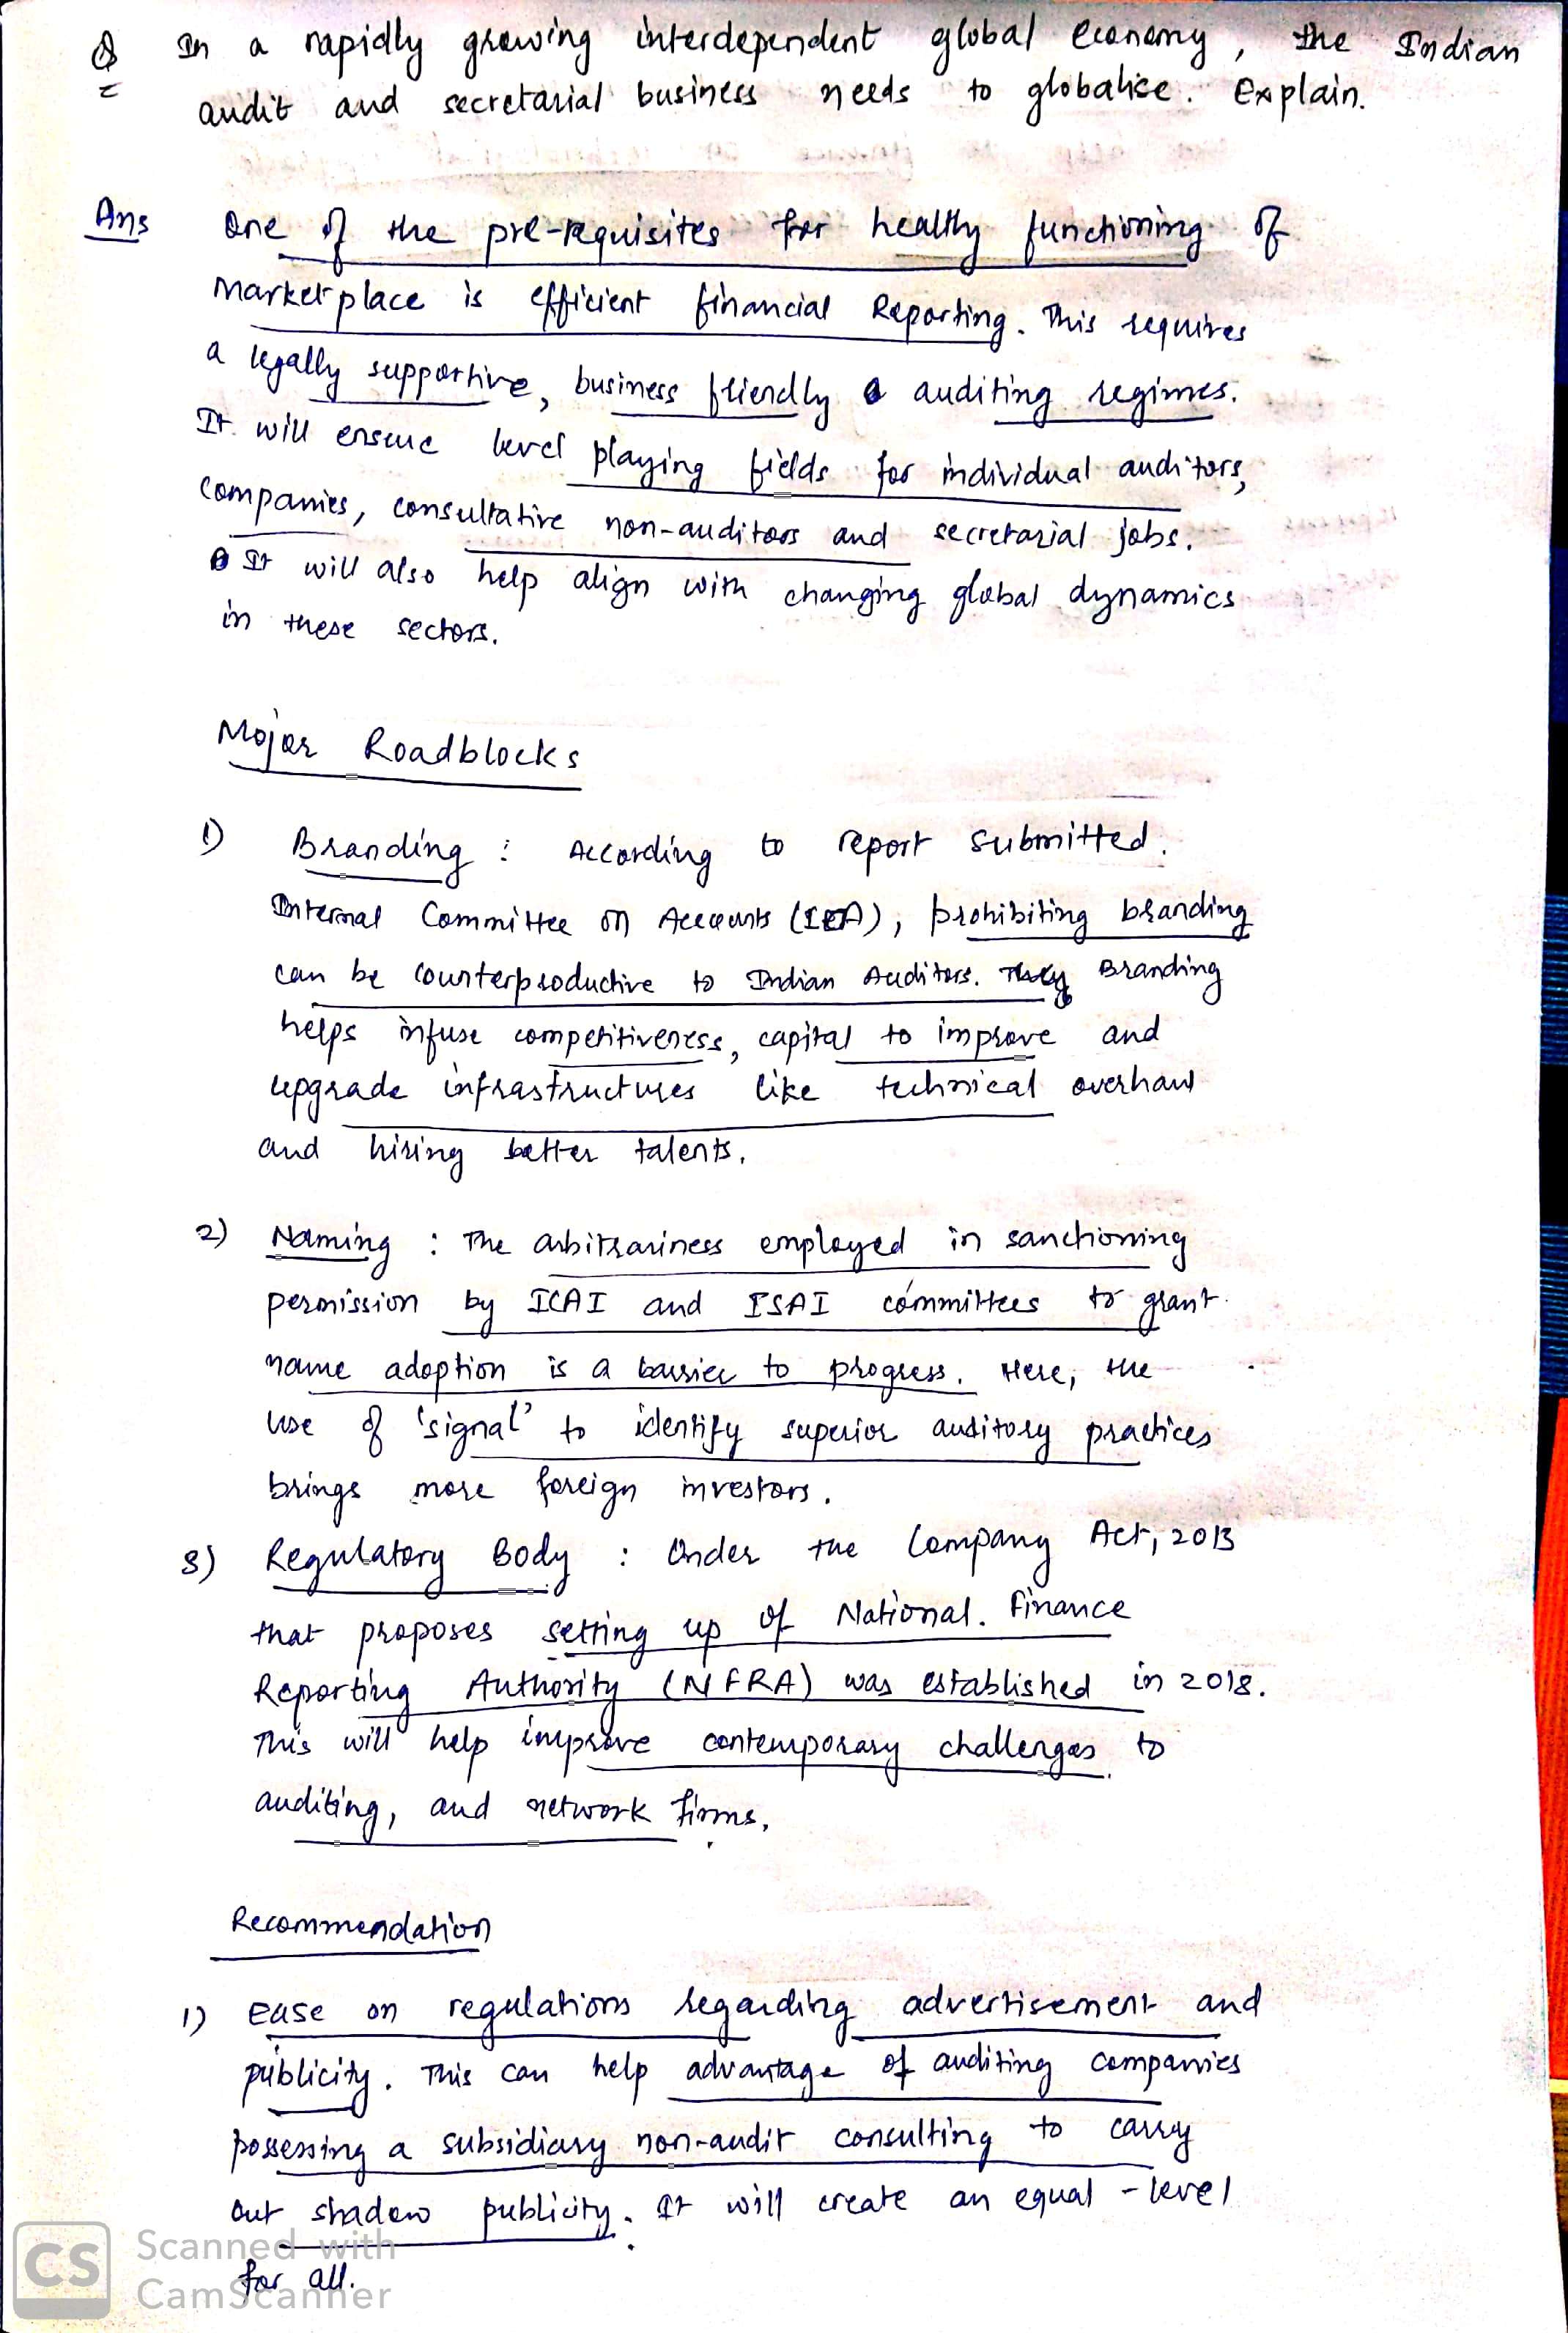 Q In a rapidly growing interdependent global economy, the Indian
audit and secretarial business needs to globalise. Explain.
Ans One of the pre-requisites for healthy functioning of
marketplace is efficient financial Reporting. This requires
a legally supportive, business friendly auditing regimes.
It will ensure level playing fields for individual auditors,
companies, consultative non-auditors and secretarial jobs.
It will also help align with changing global dynamics
in these sectors.
Major Roadblocks
1) Branding : According to report submitted.
Internal Committee on Accounts (ICA), prohibiting branding
can be counterproductive to Indian Auditors. Branding
helps infuse competitiveness, capital to improve and
upgrade infrastructures like technical overhaul
and hiring better talents.
2) Naming : The arbitrariness employed in sanctioning
permission by ICAI and ISAI committees to grant
name adoption is a barrier to progress. Here, the
use of 'signal' to identify superior auditory practices
brings more foreign investors.
3) Regulatory Body : Under the Company Act, 2013
that proposes setting up of National. Finance
Reporting Authority (NFRA) was established in 2018.
This will help improve contemporary challenges to
auditing, and network firms.
Recommendation
1) Ease on regulations regarding advertisement and
publicity. This can help advantage of auditing companies
possessing a subsidiary non-audit consulting to carry
out shadow publicity. It will create an equal-level
for all.
CS Scanned with
CamScanner